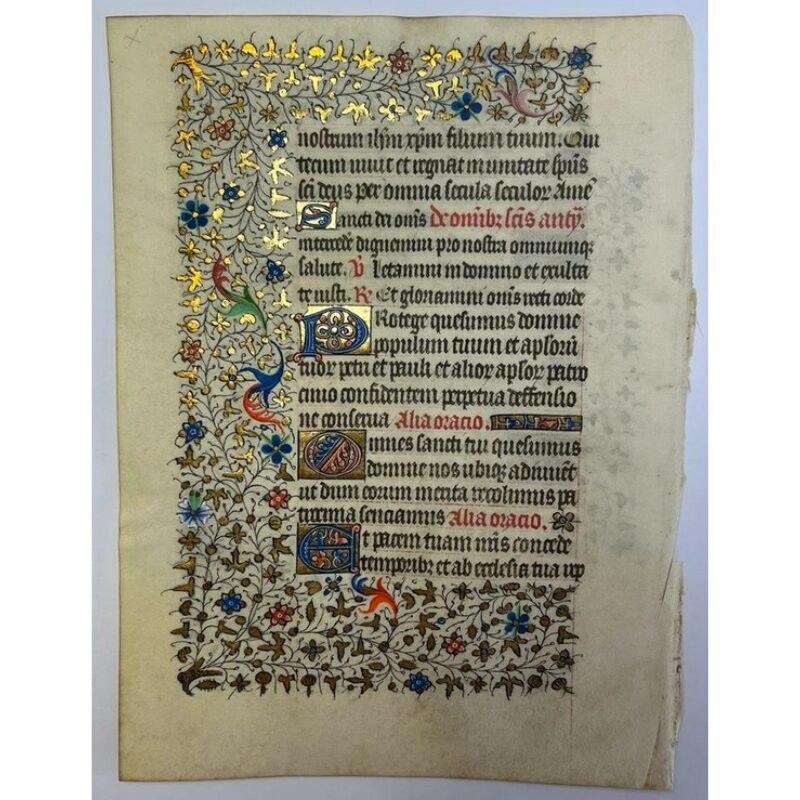 nostrum ihm xpm filium tuum. Qui
tecum uiuit et regnat in unitate spūs
scī deus per omnia secula seculor Amē
Sancti dei om̄s De omībꝫ scīs antȳ.
intercedē dignemini pro nostra omniumqꝫ
salute. V̄ Letamini in domino et exulta
te iusti. R̄ Et gloriamini om̄s recti corde
Protege quesumus domine
populum tuum et apsorū
tuor petri et pauli et alior apsor patro
cinio confidentem perpetua deffensio
ne conserua Alia oracio.
Omnes sancti tui quesumus
domine nos ubiqꝫ adiuuēt
ut dum eorum merita recolimus pa
trocinia senciamus Alia oracio.
Et pacem tuam nr̄is concede
temporibꝫ et ab ecclesia tua